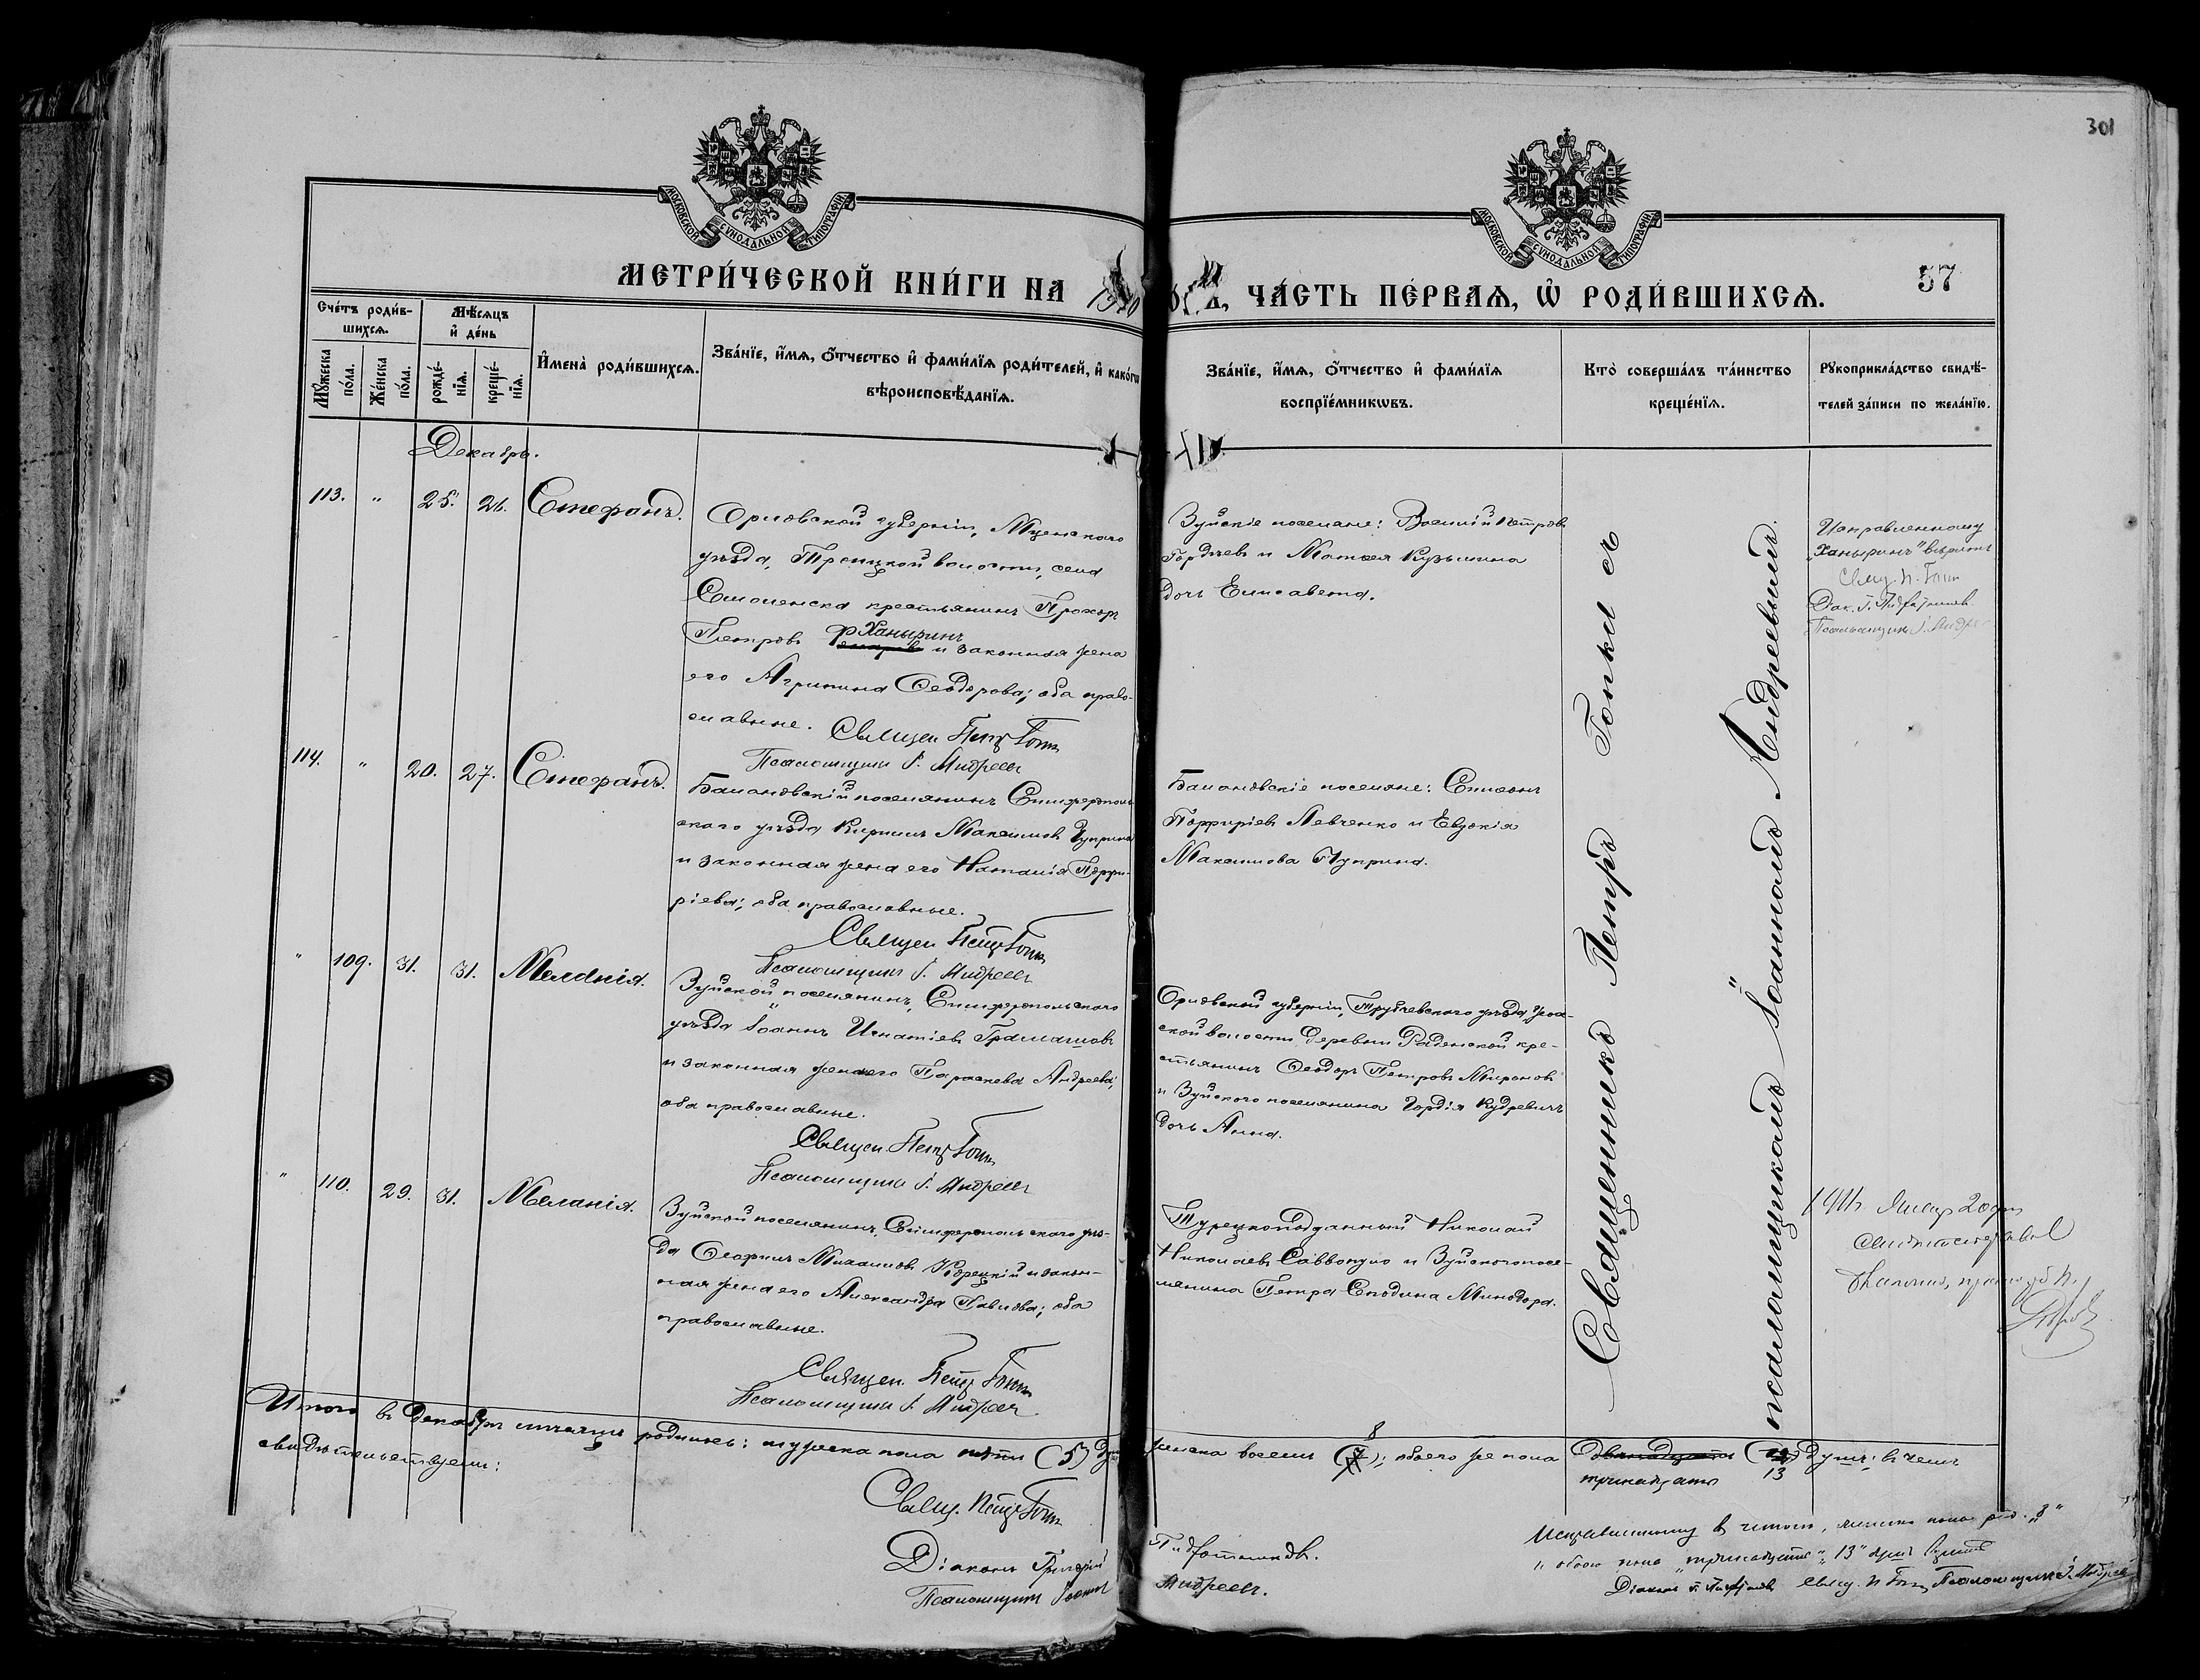 301
МОСКОВСКОЙ СѴНОДАЛЬНОЙ ТИПОГРАФІИ
МОСКОВСКОЙ СѴНОДАЛЬНОЙ ТИПОГРАФІИ
МЕТРИ́ЧЕСКОЙ КНИ́ГИ НА 1910
ЧА́СТЬ ПЕ́РВАѦ, Ѡ РОДИ́ВШИХСѦ.
57
Сче́тъ роди́в-
шихсѧ.
Мꙋ́жеска по́ла.
Же́нска по́ла.
Мѣ́сѧцъ
и҆ де́нь
рожде́-
нїѧ.
креще́-
нїѧ.
И҆мена̀ роди́вшихсѧ.
Зва́нїе, и҆́мѧ, ѻ҆́тчество и҆ фами́лїѧ роди́телей, и҆ како́гѡ
вѣроисповѣ́данїѧ.
Зва́нїе, и҆́мѧ, ѻ҆́тчество и҆ фами́лїѧ
воспрїе́мникѡвъ.
Кто̀ соверша́лъ та́инство
креще́нїѧ.
Рꙋкоприкла́дство свидѣ́-
телей за́писи по жела́нїю.
Декабрь.
113. " 25. 26. Стефанъ.
Орловской губерніи, Мценскаго
уѣзда, Троицкой волости, села
Смоленска крестьянинъ Прохоръ
Петровъ Ханыринъ и законная жена
его Агрипина Ѳеодорова; оба право-
славные.
Священ. Петръ Гопк
Псаломщикъ І. Андреевъ
Зуйскіе поселяне: Василій Петровъ
Гордѣевъ и Матвея Кузьмина
дочь Елисавета.
Исправленному
"Ханыринъ" вѣрить
Свящ. П. Гопк
Діак. Г.
Псаломщикъ І. Андре
114. " 20. 27. Стефанъ.
Балановскій поселянинъ Симферополь-
скаго уѣзда Кириллъ Максимовъ Чуприна
и законная жена его Наталія Порфи-
ріева; оба православные.
Священ. Петръ Гопк
Псаломщикъ І. Андреевъ
Балановскіе поселяне: Симеонъ
Порфиріевъ Левченко и Евдокія
Максимова Чуприна.
" 109. 31. 31. Меланія.
Зуйской поселянинъ, Симферопольскаго
уѣзда Іоаннъ Игнатіевъ Грамашовъ
и законная жена его Параскева Андреева;
оба православные.
Священ. Петръ Гопк
Псаломщикъ І. Андреевъ
Орловской губерніи, Трубчевскаго уѣзда,
ской волости деревни Раденской кре-
стьянинъ Ѳеодоръ Петровъ Мироновъ
и Зуйскаго поселянина Гордія Кудревичъ
дочь Анна.
" 110. 29. 31. Меланія.
Зуйской поселянинъ, Симферопольскаго уѣз-
да Ѳеофилъ Михаиловъ Корецкій и закон-
ная жена его Александра Павлова; оба
православные.
Священ. Петръ Гопк
Псаломщикъ І. Андреевъ
Турецкоподданный Николай
Николаевъ Саввопуло и Зуйскаго посе-
лянина Петра Сподина Минодора.
Священникъ Петръ Гопка съ
псаломщикомъ Іоанномъ Андреевымъ.
1911. Январ 20 дня
Итого въ декабрѣ мѣсяцѣ родилось: мужеска пола пять (5) душъ
женска восемь 8; обоего же пола двѣнадцать (12) душъ; въ чемъ
тринадцать 13
свидѣтельствуемъ:
Свящ. Петръ Гопк
Діаконъ Григорій
Псаломщикъ Іоаннъ
Андреевъ.
Исправленному въ итогѣ, женска пола род. "8"
"обоего пола "тринадцать" "13" душъ вѣрить
Діаконъ Г. Свящ. П. Гопк Псаломщикъ І. Андреевъ